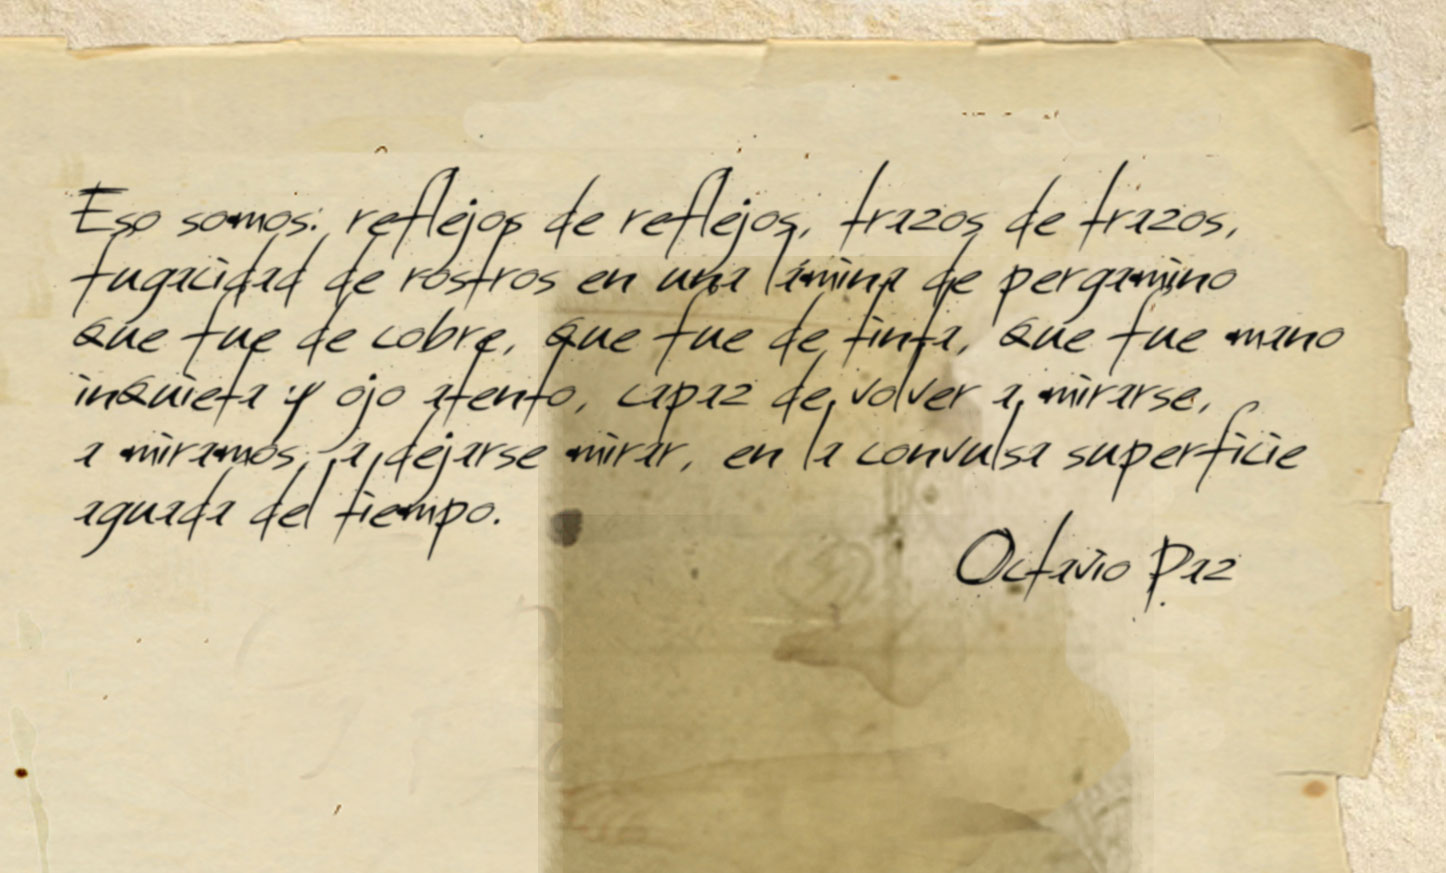 Eso somos: reflejos de reflejos, trazos de trazos,
fugacidad de rostros en una lámina de pergamino
que fue de cobre, que fue de tinta, que fue mano
inquieta y ojo atento, capaz de volver a mirarse,
a miramos, a dejarse mirar, en la convulsa superficie
aguada del tiempo.
Octavio Paz